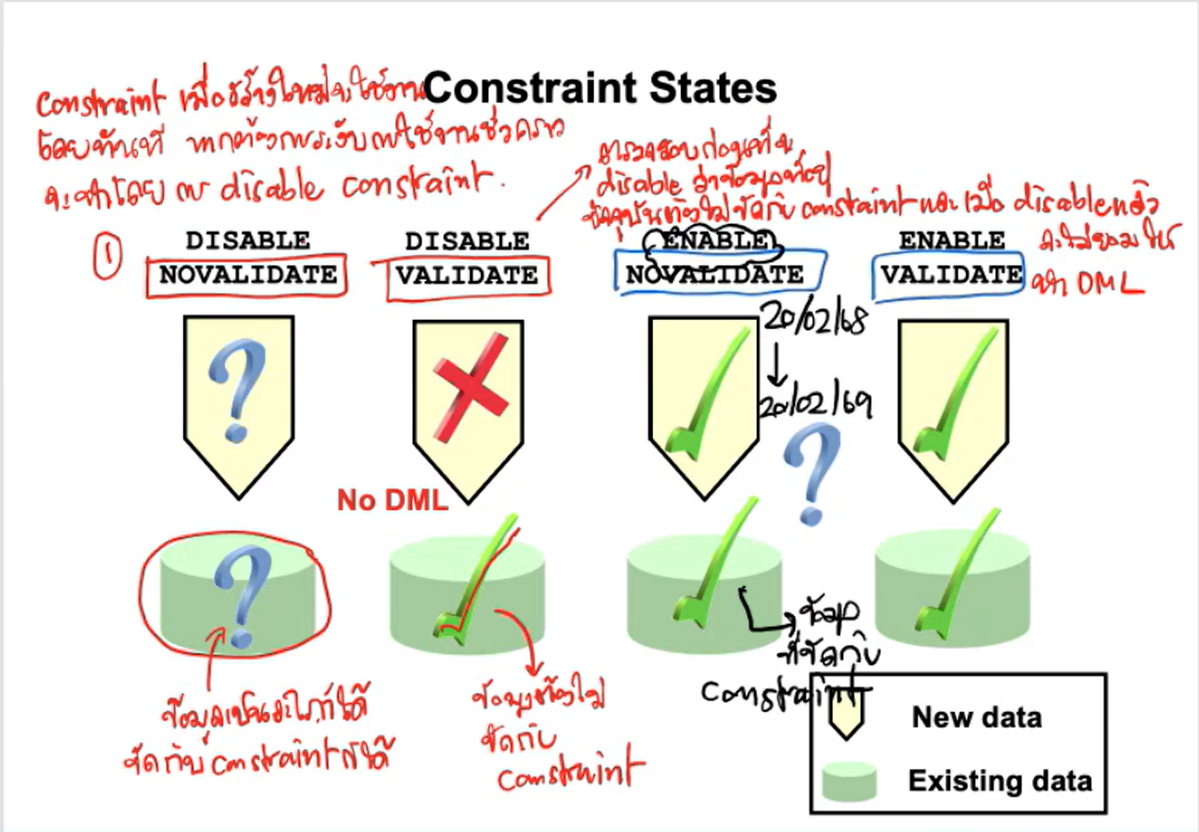 Constraint States
constraint เมื่อสร้างใหม่จะใช้งาน
โดยทันที หากต้องการระงับการใช้งานชั่วคราว
จะทำโดย การ disable constraint.
ตรวจสอบก่อนที่จะ
disable ว่าข้อมูลที่อยู่
ปัจจุบันต้องไม่ขัดกับ constraint และ เมื่อ disable แล้ว
จะไม่ยอมให้
ทำ DML
1
DISABLE
NOVALIDATE
DISABLE
VALIDATE
ENABLE
NOVALIDATE
ENABLE
VALIDATE
20/02/68
20/02/69
No DML
ข้อมูลเป็นอะไรก็ได้
ขัดกับ constraint ก็ได้
ข้อมูลต้องไม่
ขัดกับ
constraint
ข้อมูล
ที่ขัดกับ
constraint
New data
Existing data